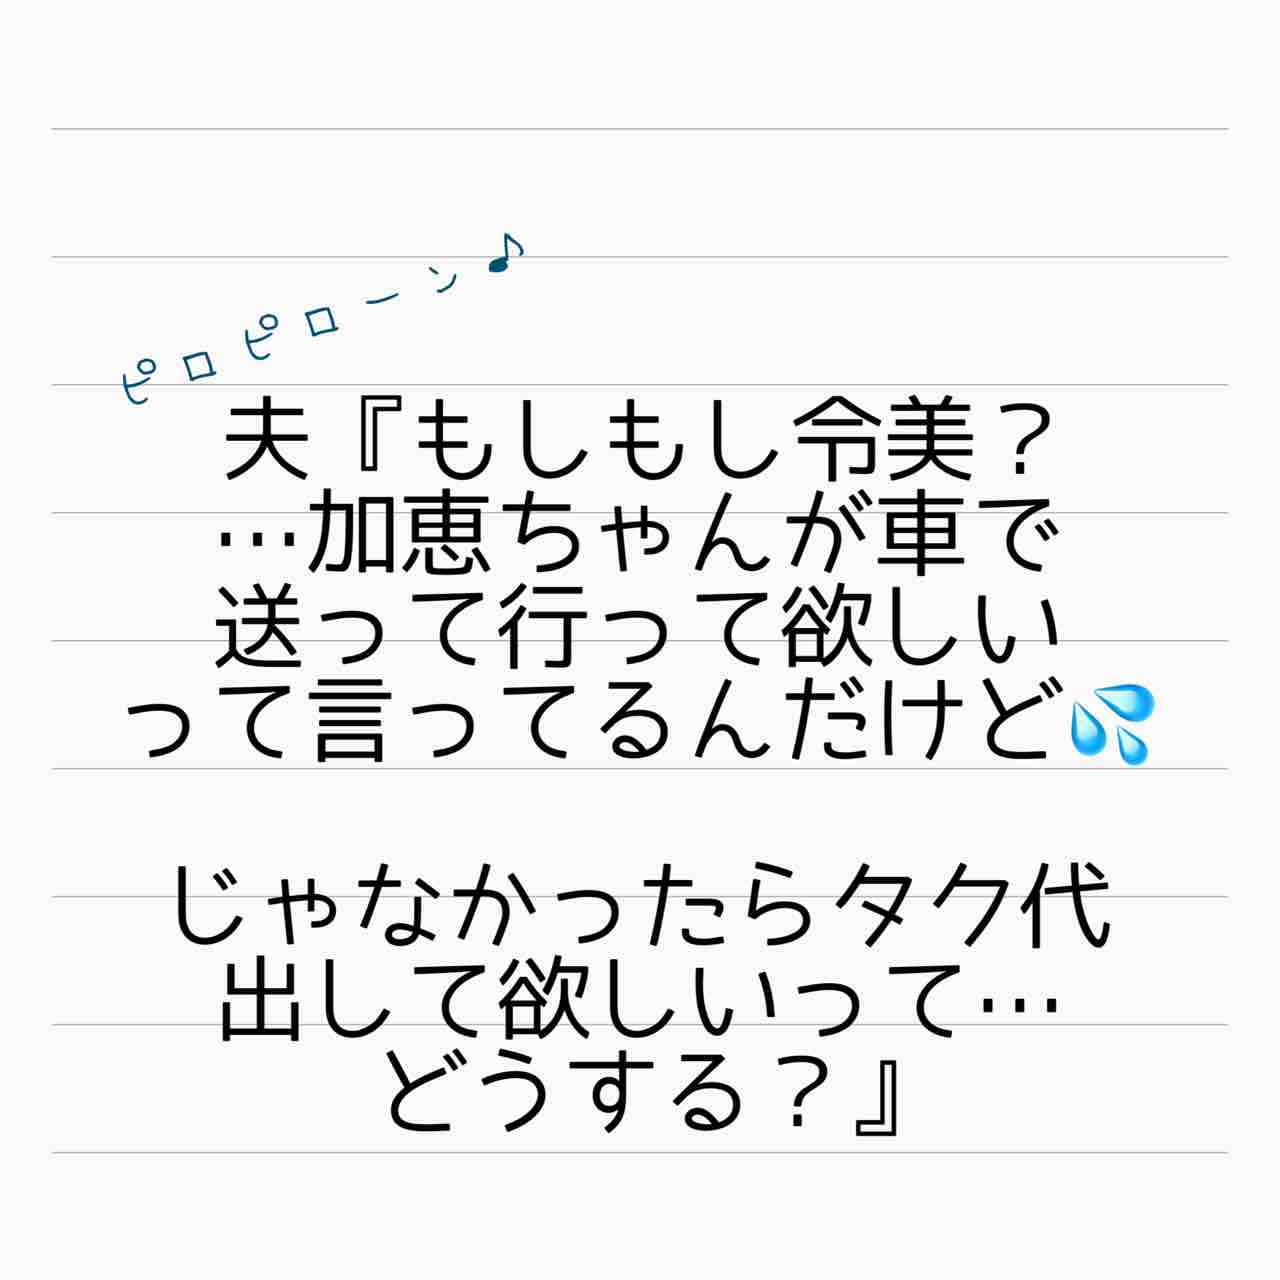 ピロピローン♪
夫『もしもし令美？
…加恵ちゃんが車で
送って行って欲しい
って言ってるんだけど💦
じゃなかったらタク代
出して欲しいって…
どうする？』